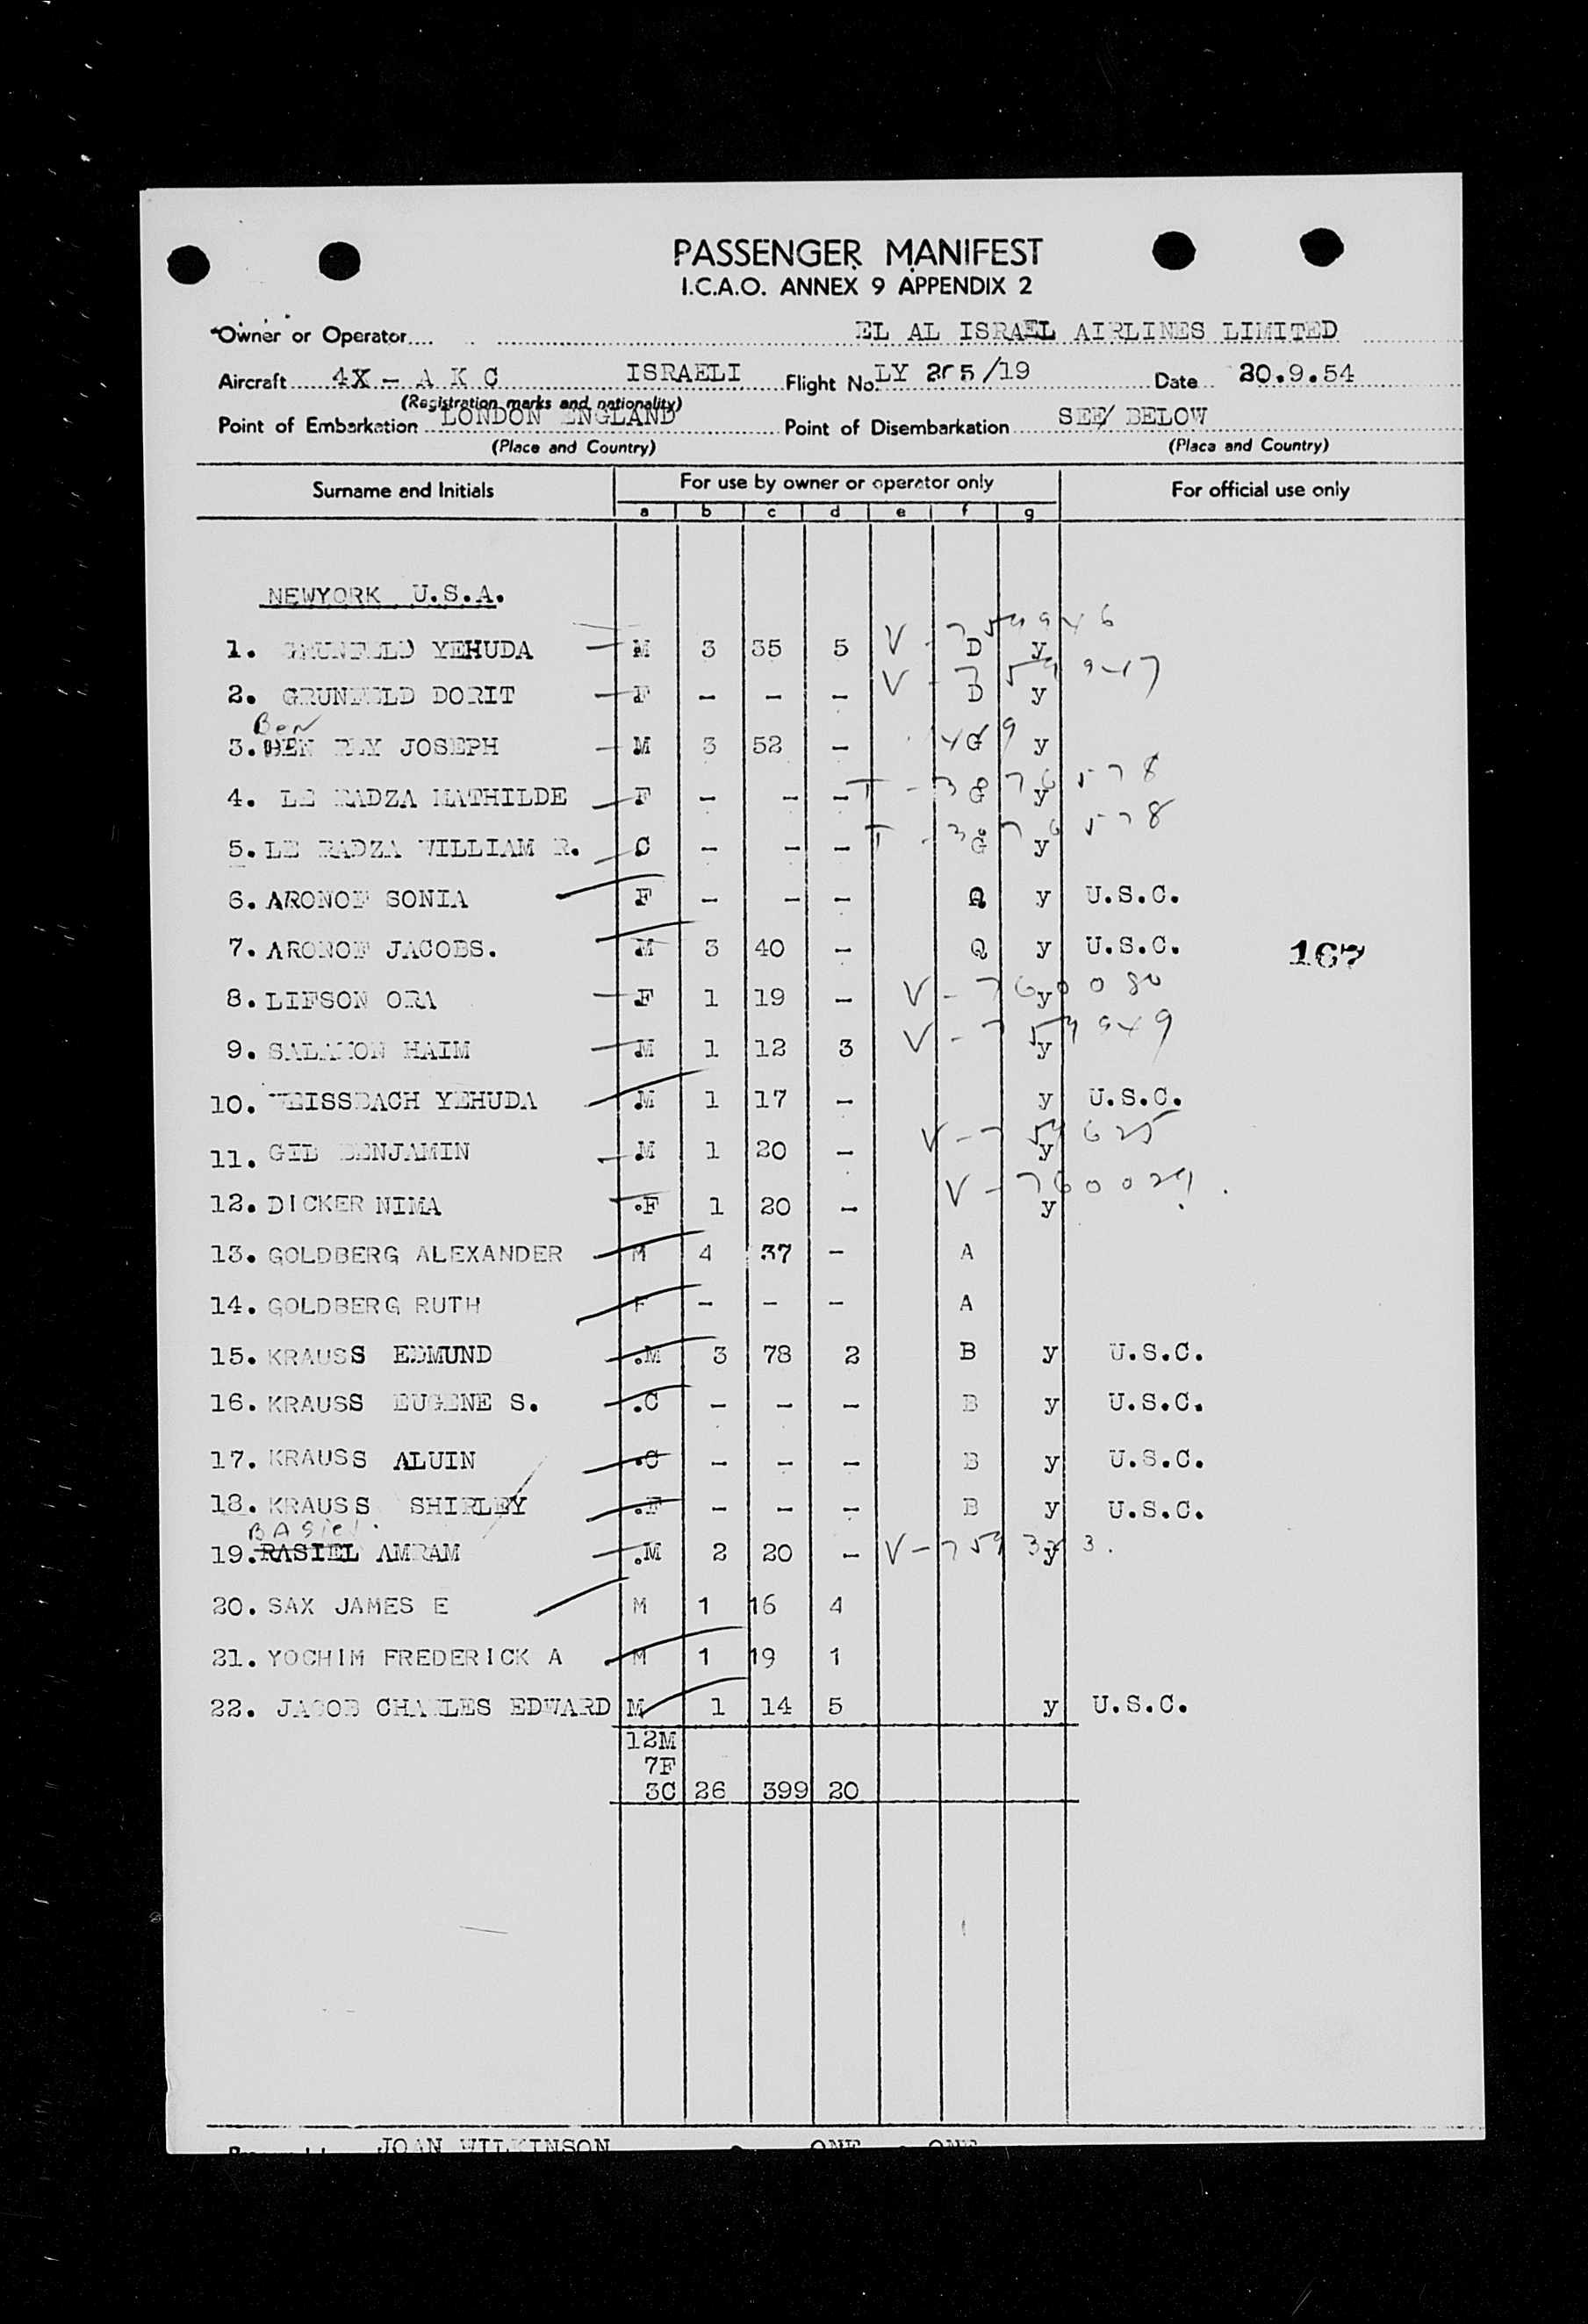 PASSENGER MANIFEST
I.C.A.O. ANNEX 9 APPENDIX 2
Owner or Operator EL AL ISRAEL AIRLINES LIMITED
Aircraft 4X - A K C ISRAELI Flight No. LY 205/19 Date 20.9.54
(Registration marks and nationality)
Point of Embarkation LONDON ENGLAND Point of Disembarkation SEE BELOW
(Place and Country) (Place and Country)
Surname and Initials For use by owner or operator only For official use only
a b c d e f g
NEWYORK U.S.A.
1. GRUNFELD YEHUDA M 3 35 5 V - 759946 D y
2. GRUNFELD DORIT F - - - V - 759947 D y
Ben
3. JOSEPH M 3 52 - G y
4. LE RADZA MATHILDE F - - - T - 3876578 G y
5. LE RADZA WILLIAM R. C - - - T - 3876578 G y
6. ARONOF SONIA F - - - Q y U.S.C.
7. ARONOF JACOBS. M 3 40 - Q y U.S.C. 167
8. LIFSON ORA F 1 19 - V - 760080 y
9. SALAMON HAIM M 1 12 3 V - 759949 y
10. WEISSBACH YEHUDA M 1 17 - y U.S.C.
11. BENJAMIN M 1 20 - V - 759625 y
12. DICKER NIMA F 1 20 - V - 760029 y
13. GOLDBERG ALEXANDER M 4 37 - A
14. GOLDBERG RUTH F - - - A
15. KRAUSS EDMUND M 3 78 2 B y U.S.C.
16. KRAUSS EUGENE S. C - - - B y U.S.C.
17. KRAUSS ALUIN C - - - B y U.S.C.
18. KRAUSS SHIRLEY F - - - B y U.S.C.
BASIEL
19. RASIEL AMRAM M 2 20 - V - 759 y
20. SAX JAMES E M 1 16 4
21. YOCHIM FREDERICK A M 1 19 1
22. JACOB CHARLES EDWARD M 1 14 5 y U.S.C.
12M
7F
3C 26 399 20
JOAN WILKINSON ONE ONE